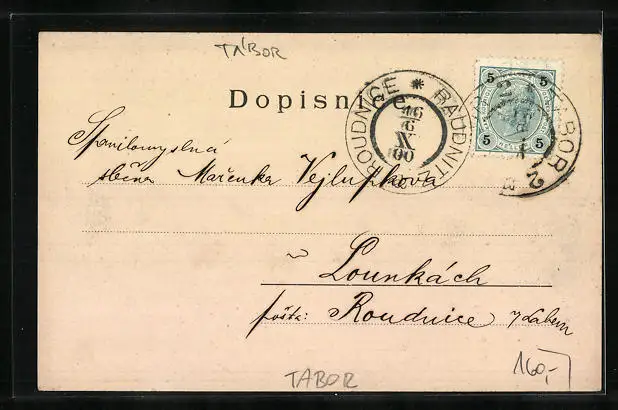 TÁBOR
Dopisnice
ROUDNICE * RAUDNITZ
16
X
00
TÁBOR 2
5 5
5 5
Spanilomyslná
slečna Mařenka Vejlupkova
v
Lounkách
pošta: Roudnice n/Labem
160,-
TABOR